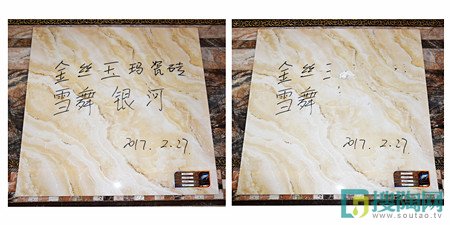 金丝玉玛瓷砖
雪舞银河
2017.2.27
金丝
雪舞
2017.2.27
搜陶网
www.soutao.tv